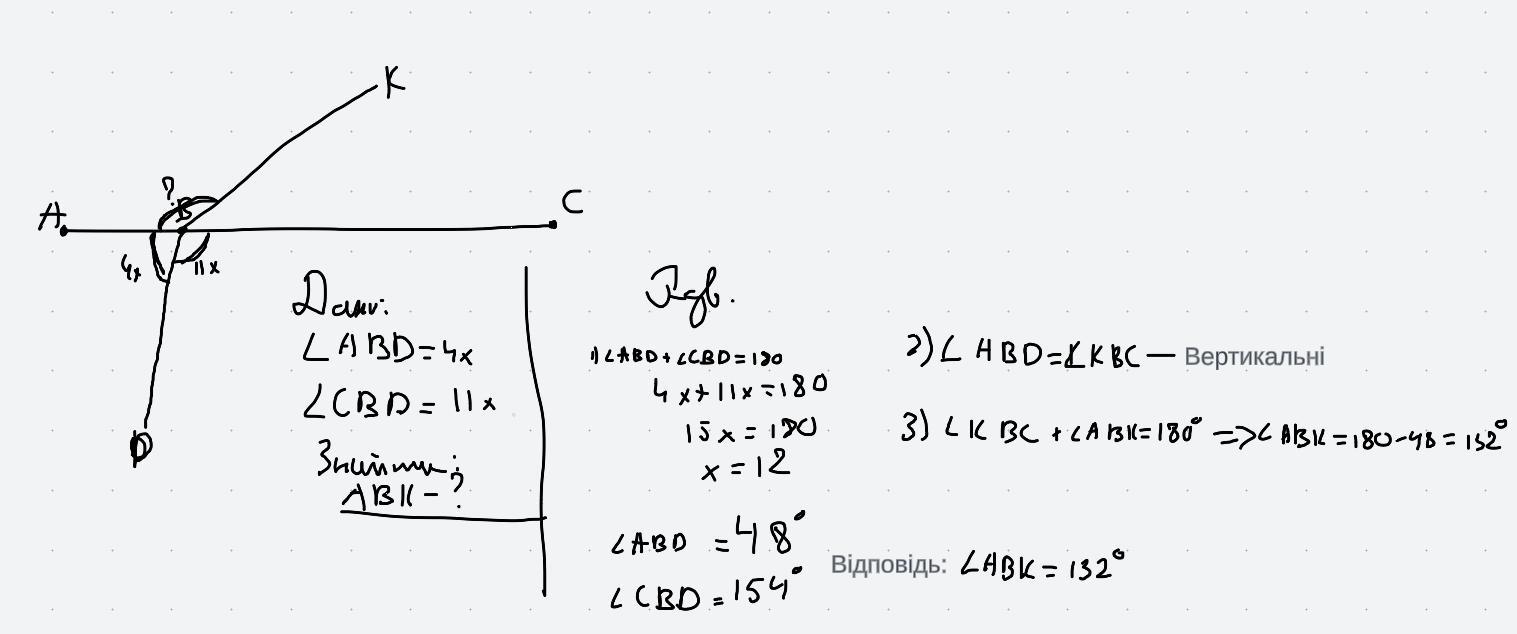 K
?
B
A
C
4x
11x
Дано:
∠ABD=4x
∠CBD = 11x
Знайти:
ABK - ?
Розв.
1) ∠ABD+∠CBD=180
4x+11x=180
15x=180
x=12
∠ABD =48°
∠CBD=154°
2) ∠ABD=∠KBC — Вертикальні
3) ∠KBC+∠ABK=180° => ∠ABK=180-48=132°
Відповідь: ∠ABK=132°
D